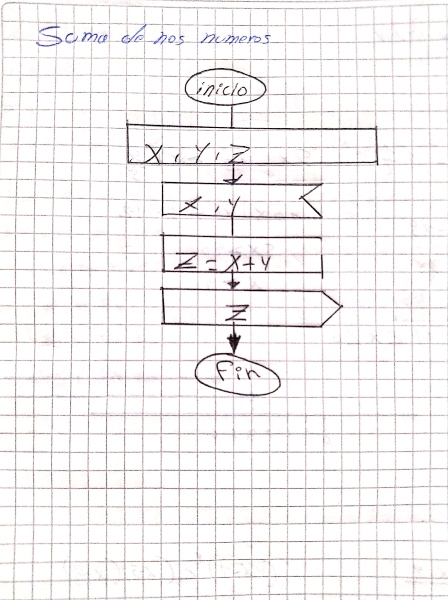 Suma de nos numeros
inicio
X, Y, Z
X, Y
Z = X+Y
Z
Fin